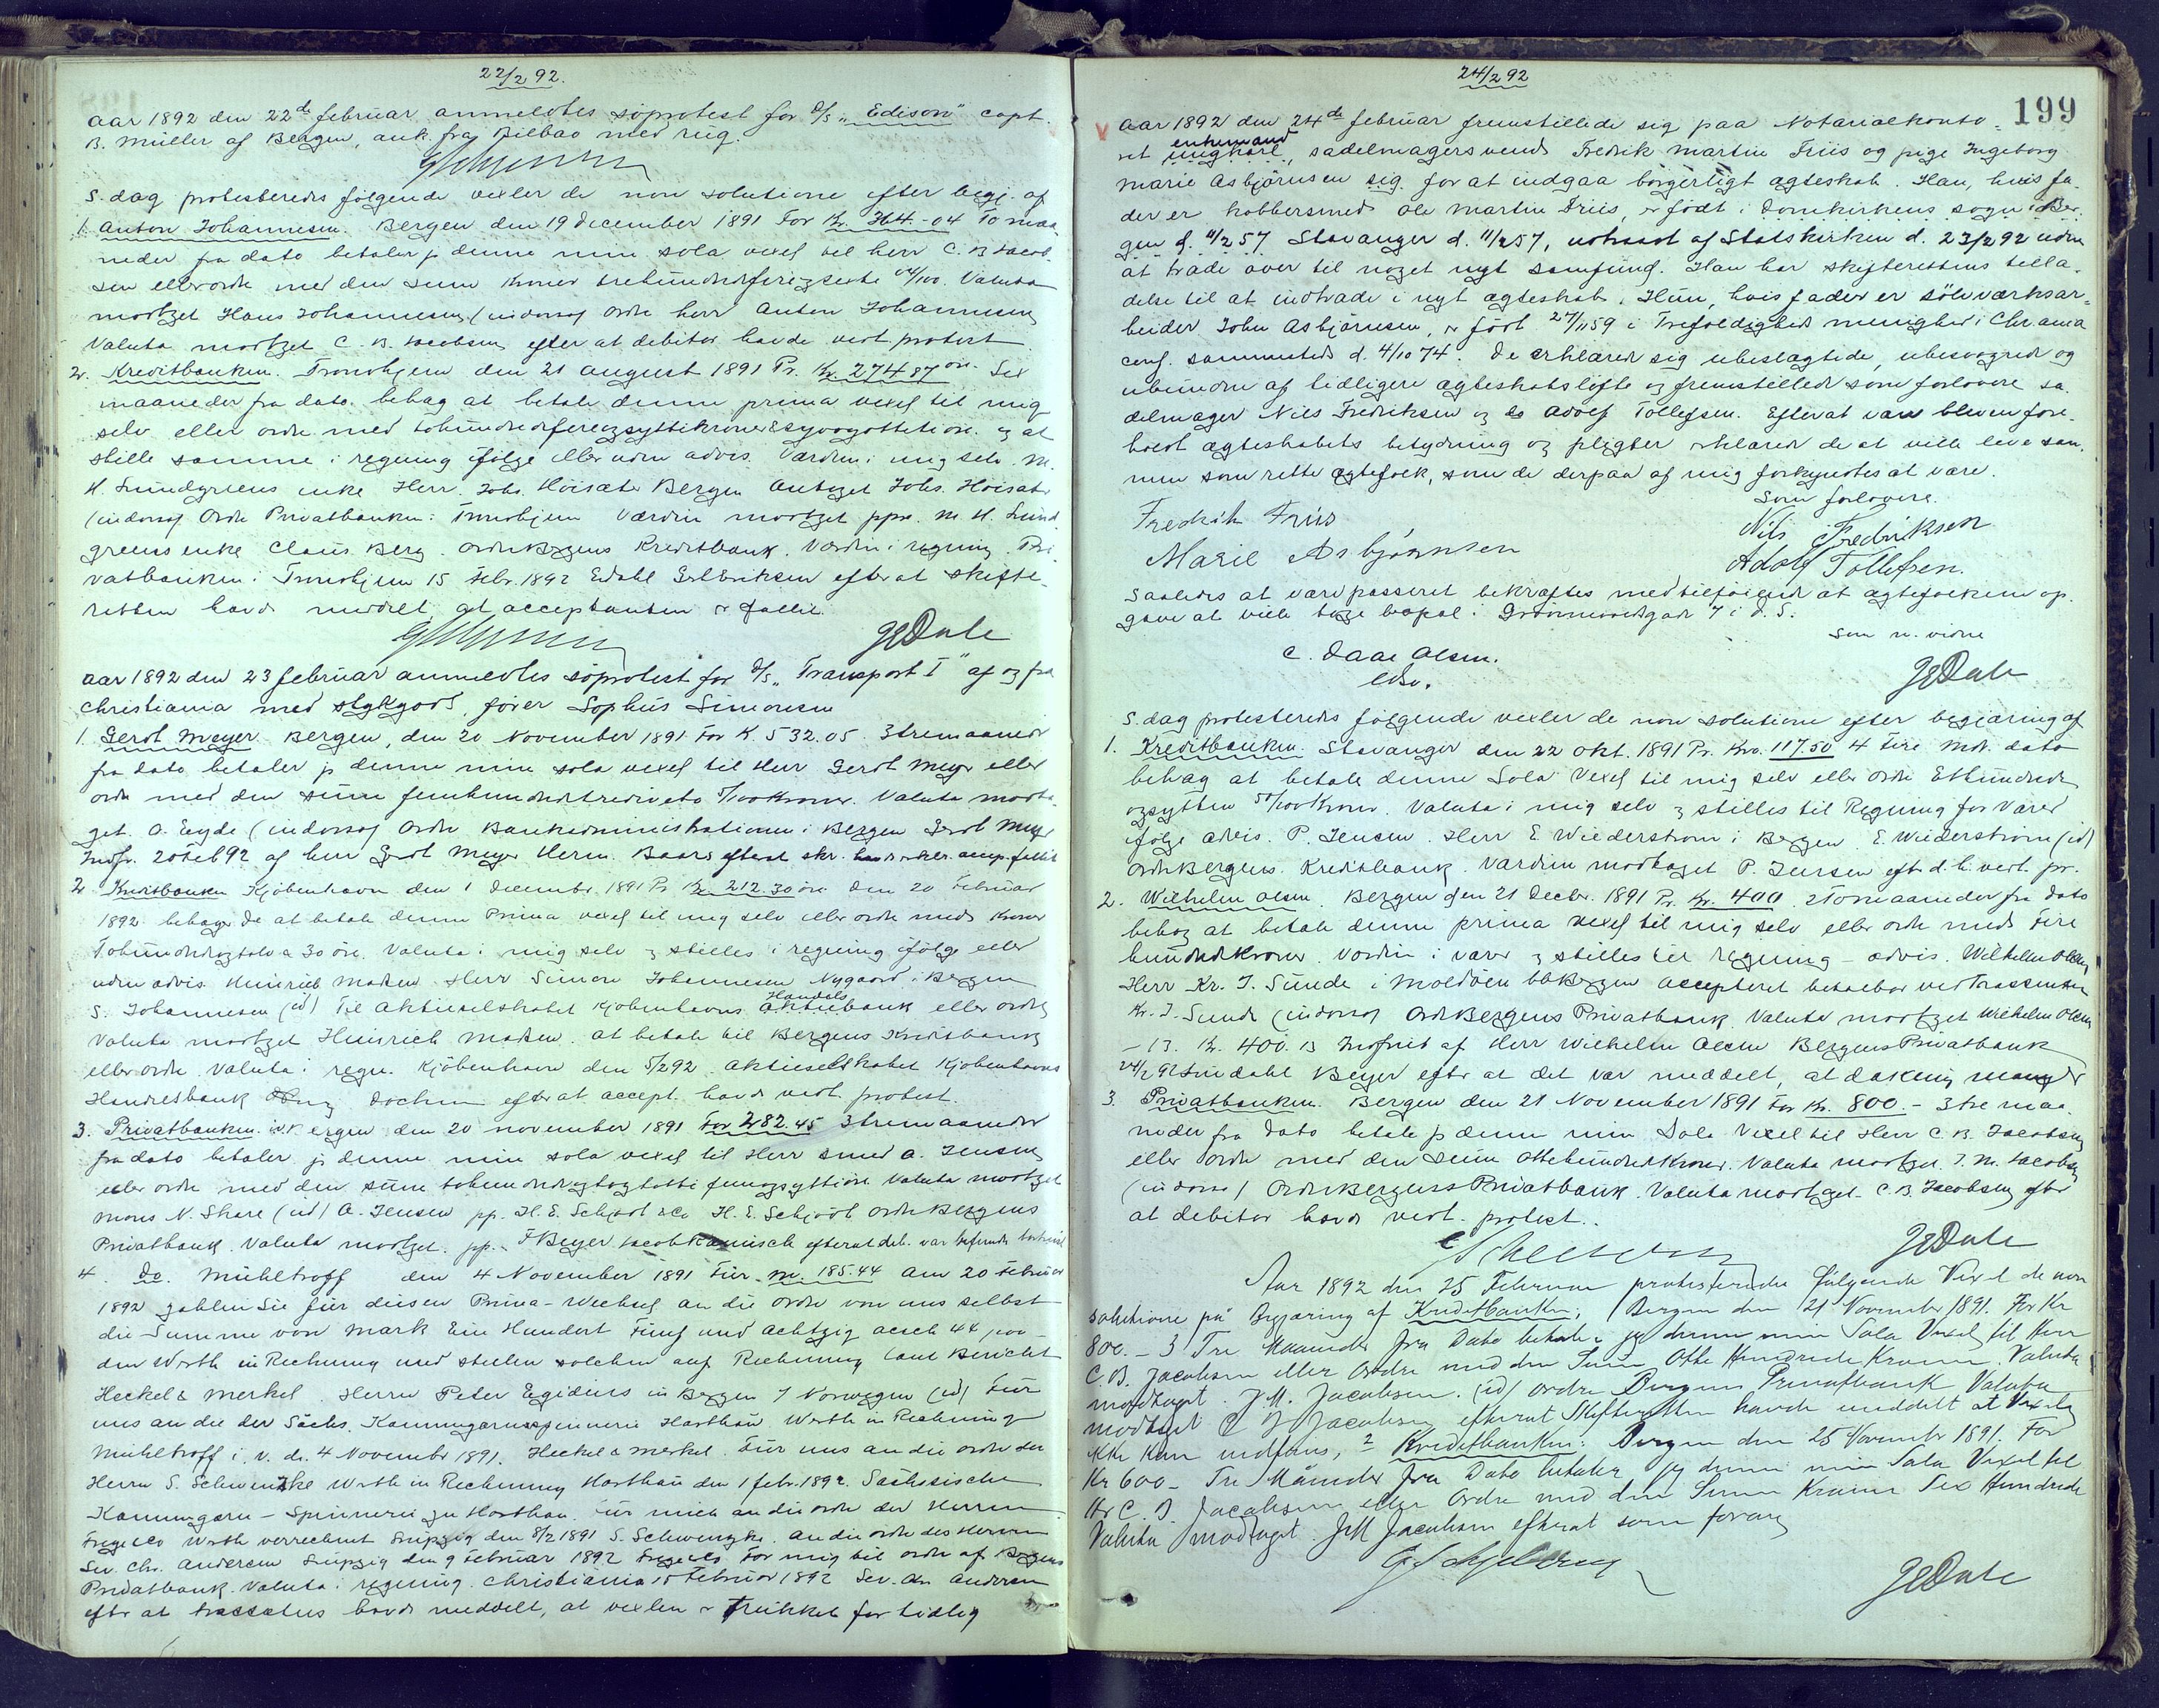 22/2 92.
aar 1892 den 22de februar anmeldtes söprotest for D/S „Edison" capt.
B. Müller af Bergen, ank. fra Bilbao med rug.
S. dag protesteredes følgende vexler de non solutione efter begj. af
1. Anton Johannesen. Bergen den 19 december 1891 For Kr. 364-04 To maa
neder fra dato betaler jeg denne min sola vexel til herr C. B. Jacob-
sen eller ordre med den sum kroner trehundredefireogsexti 04/100. Valuta
modtaget Hans Johannesen (indorso) ordre herr Anton Johannesen
Valuta modtaget C. B. Jacobsen efter at debitor havde vert. protest
2. Kreditbanken. Trondhjem den 21 august 1891 Pr. Kr. 274 87 öre. Sex
maaneder fra dato behag at betale denne prima vexel til mig
selv eller ordre med tohundredefireogsyttikroner & syvogottetiöre og at
stille samme i regning ifølge eller uden advis. Værdien i mig selv. M.
H. Lundgreens enke Herr. Johs. Höisæter Bergen Antaget Johs. Höisæter
(indorso) Ordre Privatbanken i Trondhjem Værdien modtaget ppr. M. H. Lund
greens enke Claus Berg. Ordre Bergens Kreditbank. Værdien i regning. Pri-
vatbanken i Trondhjem 15 Febr. 1892 efter at skifte-
retten havde meddelt at acceptanten er fallit
GEDahl
aar 1892 den 23 februar anmeldtes söprotest for D/S „Transport I" af og fra
Christiania med stykgods, fører Sophus Simonsen
1. Gerdt Meyer. Bergen, den 20 November 1891 For K. 532.05. 3 tremaaneder
fra dato betaler jeg denne min sola vexel til Herr Gerdt Meyer eller
ordre med den sum femhundredetrediveto 5/100 Kroner. Valuta modta-
get. O. Eyde (indorso) Ordre Bankadministrationen i Bergen Gerdt Meyer
Indfr. 20 Feb 92 af herr Gerdt Meyer Herm. Baars efterat skr. havde erkler. accep. fallit
2. Kreditbanken Kjöbenhavn den 1 December 1891 Pr Kr 212.30 öre Den 20 Februar
1892 behager De at betale denne Prima vexel til mig selv eller ordre med Kroner
Tohundredeogtolv & 30 öre. Valuta i mig selv og stilles i regning ifølge eller
uden advis Heinrich Madsen Herr Simon Johannesen Nygaard i Bergen
S. Johannesen (id) Til Aktieselskabet Kjöbenhavns Handelsbank eller ordre
Valuta modtaget Heinrich Madsen. At betale til Bergens Kreditbank
eller ordre. Valuta i regn. Kjöbenhavn den 5/2 92. Aktieselskabet Kjöbenhavns
Handelsbank efter at accept. havde vert. protest.
3. Privatbanken. Bergen den 20 november 1891 For 282.45 3 tremaaneder
fra dato betaler jeg denne min sola vexel til Herr smed A. Jensen
eller ordre med den sum tohundredeogtoogtotti femogfyrtiöre Valuta modtaget
Mons N. Skare (id) A. Jensen pp. H. E. Schjödt & Co H. E. Schjödt ordre Bergens
Privatbank. Valuta modtaget. pp. F Beyer efterat deb. var befunden bortreist
4. Do. Mühltroff den 4 November 1891 Für M. 185.44 Am 20 Februar
1892 zahlen Sie für diesen Prima-Wechsel an die Ordre von uns selbst
die Summe von Mark Ein Hundert Fünf und achtzig auch 44 pro-
den Werth in Rechnung und stellen solchen auf Rechnung laut Bericht
Heckel & Merkel. Herrn Peter Egidius in Bergen / Norwegen (id) Für
uns an die der Sächs. Kammgarnspinnerei Harthau. Werth in Rechnung
Mühltroff i. V. d. 4 November 1891. Heckel & Merkel. Für uns an die ordre der
Herrn S. Schwenzke Werth in Rechnung Harthau den 1 febr. 1892. Sächsische
Kammgarn-Spinnerei zu Harthau. Für mich an die ordre der Herren
Frege & Co Werth verrechnet Leipzig den 8/2 1891 S. Schwenzke. An die ordre des Herrn
Sev. Chr. Andersen Leipzig den 9 Februar 1892 Frege & Co For mig til ordre af Bergens
Privatbank. Valuta i regning. Christiania 15 Februar 1892 Sev. Chr. Andersen
efter at trassatus havde meddelt, at vexlen er trukket for tidlig
24/2 92
199
Aar 1892 den 24de februar fremstillede sig paa Notarialkonto-
ret enkemand ungkarl, sadelmagersvend Fredrik Martin Friis og pige Ingeborg
Marie Asbjörnsen sig for at indgaa borgerligt ægteskab. Han, hvis fa-
der er kobbersmed Ole Martin Friis, er født i Domkirkens sogn i Ber-
gen d. 11/2 57 Stavanger d. 11/2 57, udtraadt af Statskirken d. 23/2 92 uden
at træde over til noget nyt samfund. Han har skifterettens tilla-
delse til at indtræde i nyt ægteskab. Hun, hvis fader er sölvværksar-
beider John Asbjörnsen, er født 27/11 59 i Trefoldigheds menighed i Chr.ania
conf. sammesteds d. 4/10 74. De erklærede sig ubeslægtede, ubesvogrede og
ubundne af tidligere ægteskabsløfte og fremstillede som forlovere sa-
delmager Nils Fredriksen og do Adolf Tollefsen. Efterat være bleven fore-
holdt ægteskabets betydning og pligter erklærede de at ville leve sam-
men som rette ægtefolk, som de derpaa af mig forkyndtes at være.
Som forlovere.
Fredrik Friis
Nils Fredriksen
Marie Asbjørnsen
Adolf Tollefsen.
Saaledes at være passeret bekræftes med tilføiende at ægtefolkene op-
gave at ville tage bopæl i 7 i d. S.
som n. vidne
C. Daae Olsen.
GEDahl
S. dag protesteredes følgende vexler de non solutione efter begjæring af
1. Kreditbanken. Stavanger den 22 Okt. 1891 Pr. Kro. 117.50 4 Fire Mdr. dato
behag at betale denne Sola Vexel til mig selv eller ordre Ethundrede
ogsytten 50/100 Kroner. Valuta i mig selv og stilles til Regning for Varer
ifølge advis. P. Jensen. Herr E Wiederstrøm i Bergen E. Wiederstrøm (id)
Ordre Bergens Kreditbank. Værdien modtaget P. Jensen eft. d. h. vert. pr.
2. Wilhelm Olsen. Bergen den 21 Decbr. 1891 Pr. Kr. 400. 2 Tomaaneder fra dato
behag at betale denne prima vexel til mig selv eller ordre med Fire
hundredekroner. Værdien i varer og stilles til regning - advis. Wilhelm Olsen
Herr Kr. J. Sunde i Moldöen Bergen accepteret betalbar ved Trassenten
Kr. J. Sunde (indorso) Ordre Bergens Privatbank. Valuta modtaget Wilhelm Olsen
-13. Kr. 400. 13 Indfriet af Herr Wilhelm Olsen Bergens Privatbank
24/2 92 Lindahl Beyer efter at det var meddelt, at dækning mangler
3. Privatbanken. Bergen den 21 November 1891 For Kr. 800.- 3 tre maa-
neder fra dato betaler jeg denne min Sola Vexel til Herr C. B. Jacobsen
eller ordre med den sum ottehundredekroner. Valuta modtaget. J. M. Jacobsen
(indorso) Ordre Bergens Privatbank. Valuta modtaget. C. B. Jacobsen efter
at debitor havde vert. protest..
GEDahl
Aar 1892 den 25 Februar protesteredes følgende Vexel de non
solutione på Begjæring af Kreditbanken; 1 Bergen den 21 November 1891. For Kr
800.- 3 Tre Maaneder fra Dato betaler jeg denne min Sola Vexel til Herr
C. B. Jacobsen eller Ordre med den Sum Otte Hundrede Kroner. Valuta
modtaget. J. M. Jacobsen. (id) ordre Bergens Privatbank Valuta
modtaget C B Jacobsen efterat Skifteretten havde meddelt at Vexelen
ikke kan indfries, 2 Kreditbanken: Bergen den 25 November 1891. For
Kr 600- Tre Måneder fra Dato betaler jeg denne min Sola Vexel til
Hr C. B. Jacobsen eller Ordre med den Summ Kroner Sex Hundrede
Valuta modtaget. J M Jacobsen efterat som foran
GEDahl